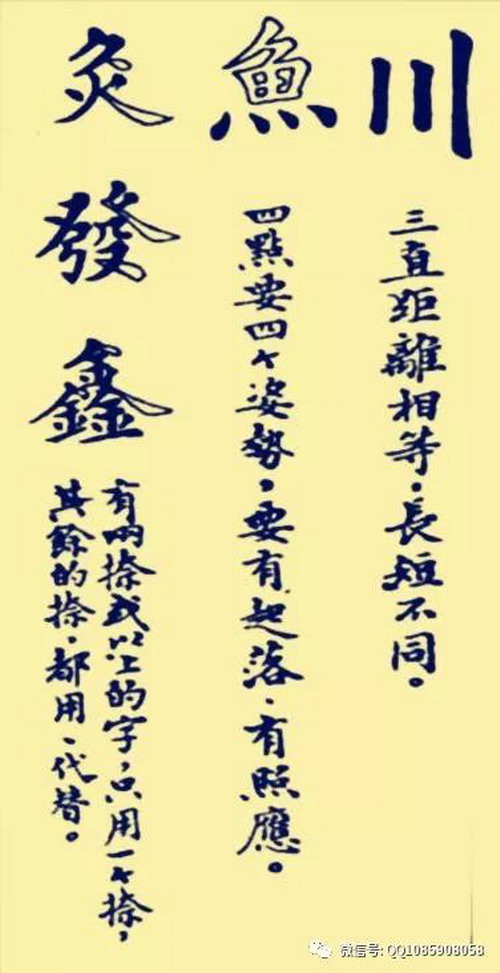 川
三直距離相等。長短不同。
魚
四點要四个姿勢。要有起落、有照應。
炙
發
鑫
有兩捺或以上的字，只用一个捺，
其餘的捺、都用、代替。
微信号: QQ1085908058